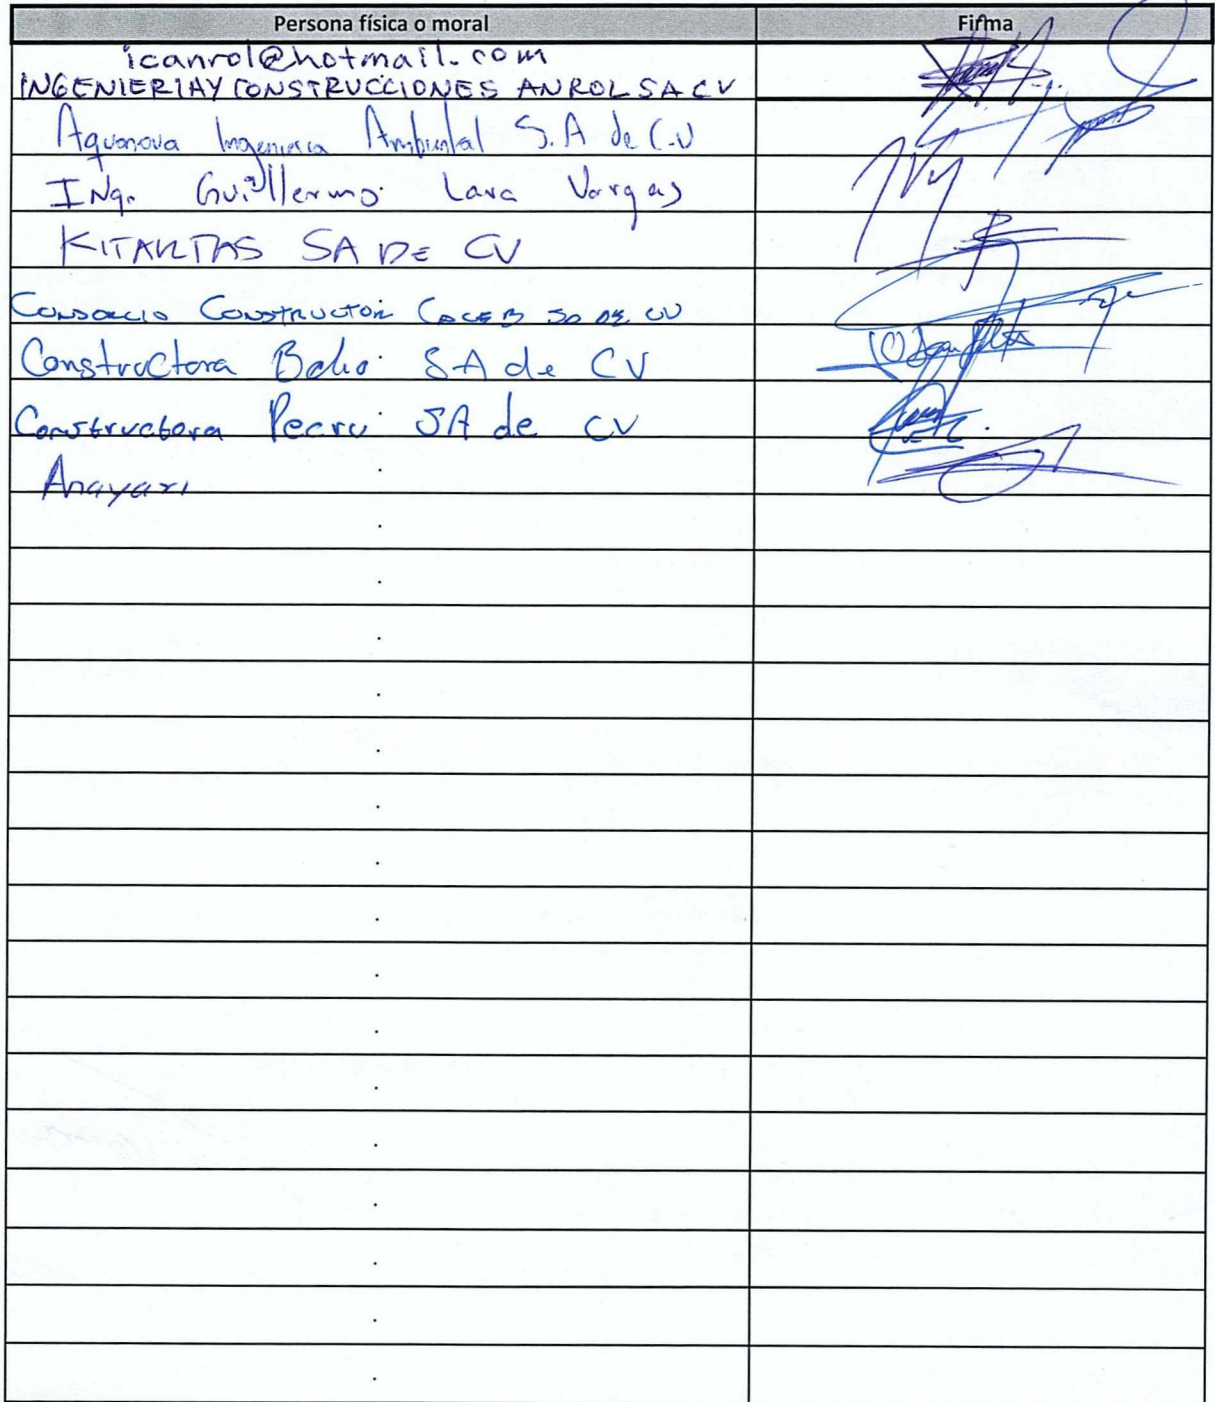 Persona física o moral Firma
icanrol@hotmail.com
INGENIERIA Y CONSTRUCCIONES ANROL SA CV
Aquanova Ingenieria Ambiental S.A de C.V
INg. Guillermo Lara Vargas
SA DE CV
CONSORCIO CONSTRUCTOR COCEB SA DE CV
Constructora Balio SA de CV
Constructora Pecru SA de CV
Anayari